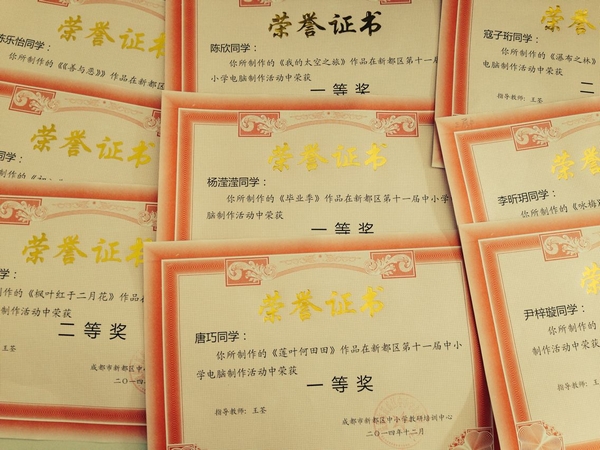 陈乐怡同学：
荣誉证书
你所制作的《《善与恶》》作品在新都区
荣誉证书
陈欣同学：
你所制作的《我的太空之旅》作品在新都区第十一届中
小学电脑制作活动中荣获
一等奖
荣誉
寇子珩同学：
你所制作的《瀑布之林》
电脑制作活动中荣获
二
指导教师：王荃
荣誉证书
同学：
荣誉证书
杨滢滢同学：
你所制作的《毕业季》作品在新都区第十一届中小学
电脑制作活动中荣获
一等奖
荣誉
李昕玥同学：
你所制作的《咏梅
荣誉证书
学：
制作的《枫叶红于二月花》作品在
制作活动中荣获
二等奖
王荃
成都市新都区中
二〇一四年
荣誉证书
唐巧同学：
你所制作的《莲叶何田田》作品在新都区第十一届中小
学电脑制作活动中荣获
一等奖
指导教师：王荃
成都市新都区中小学教研培训中心
二〇一四年十二月
荣誉
尹梓璇同学：
你所制作的
制作活动中荣获
指导教师：王荃